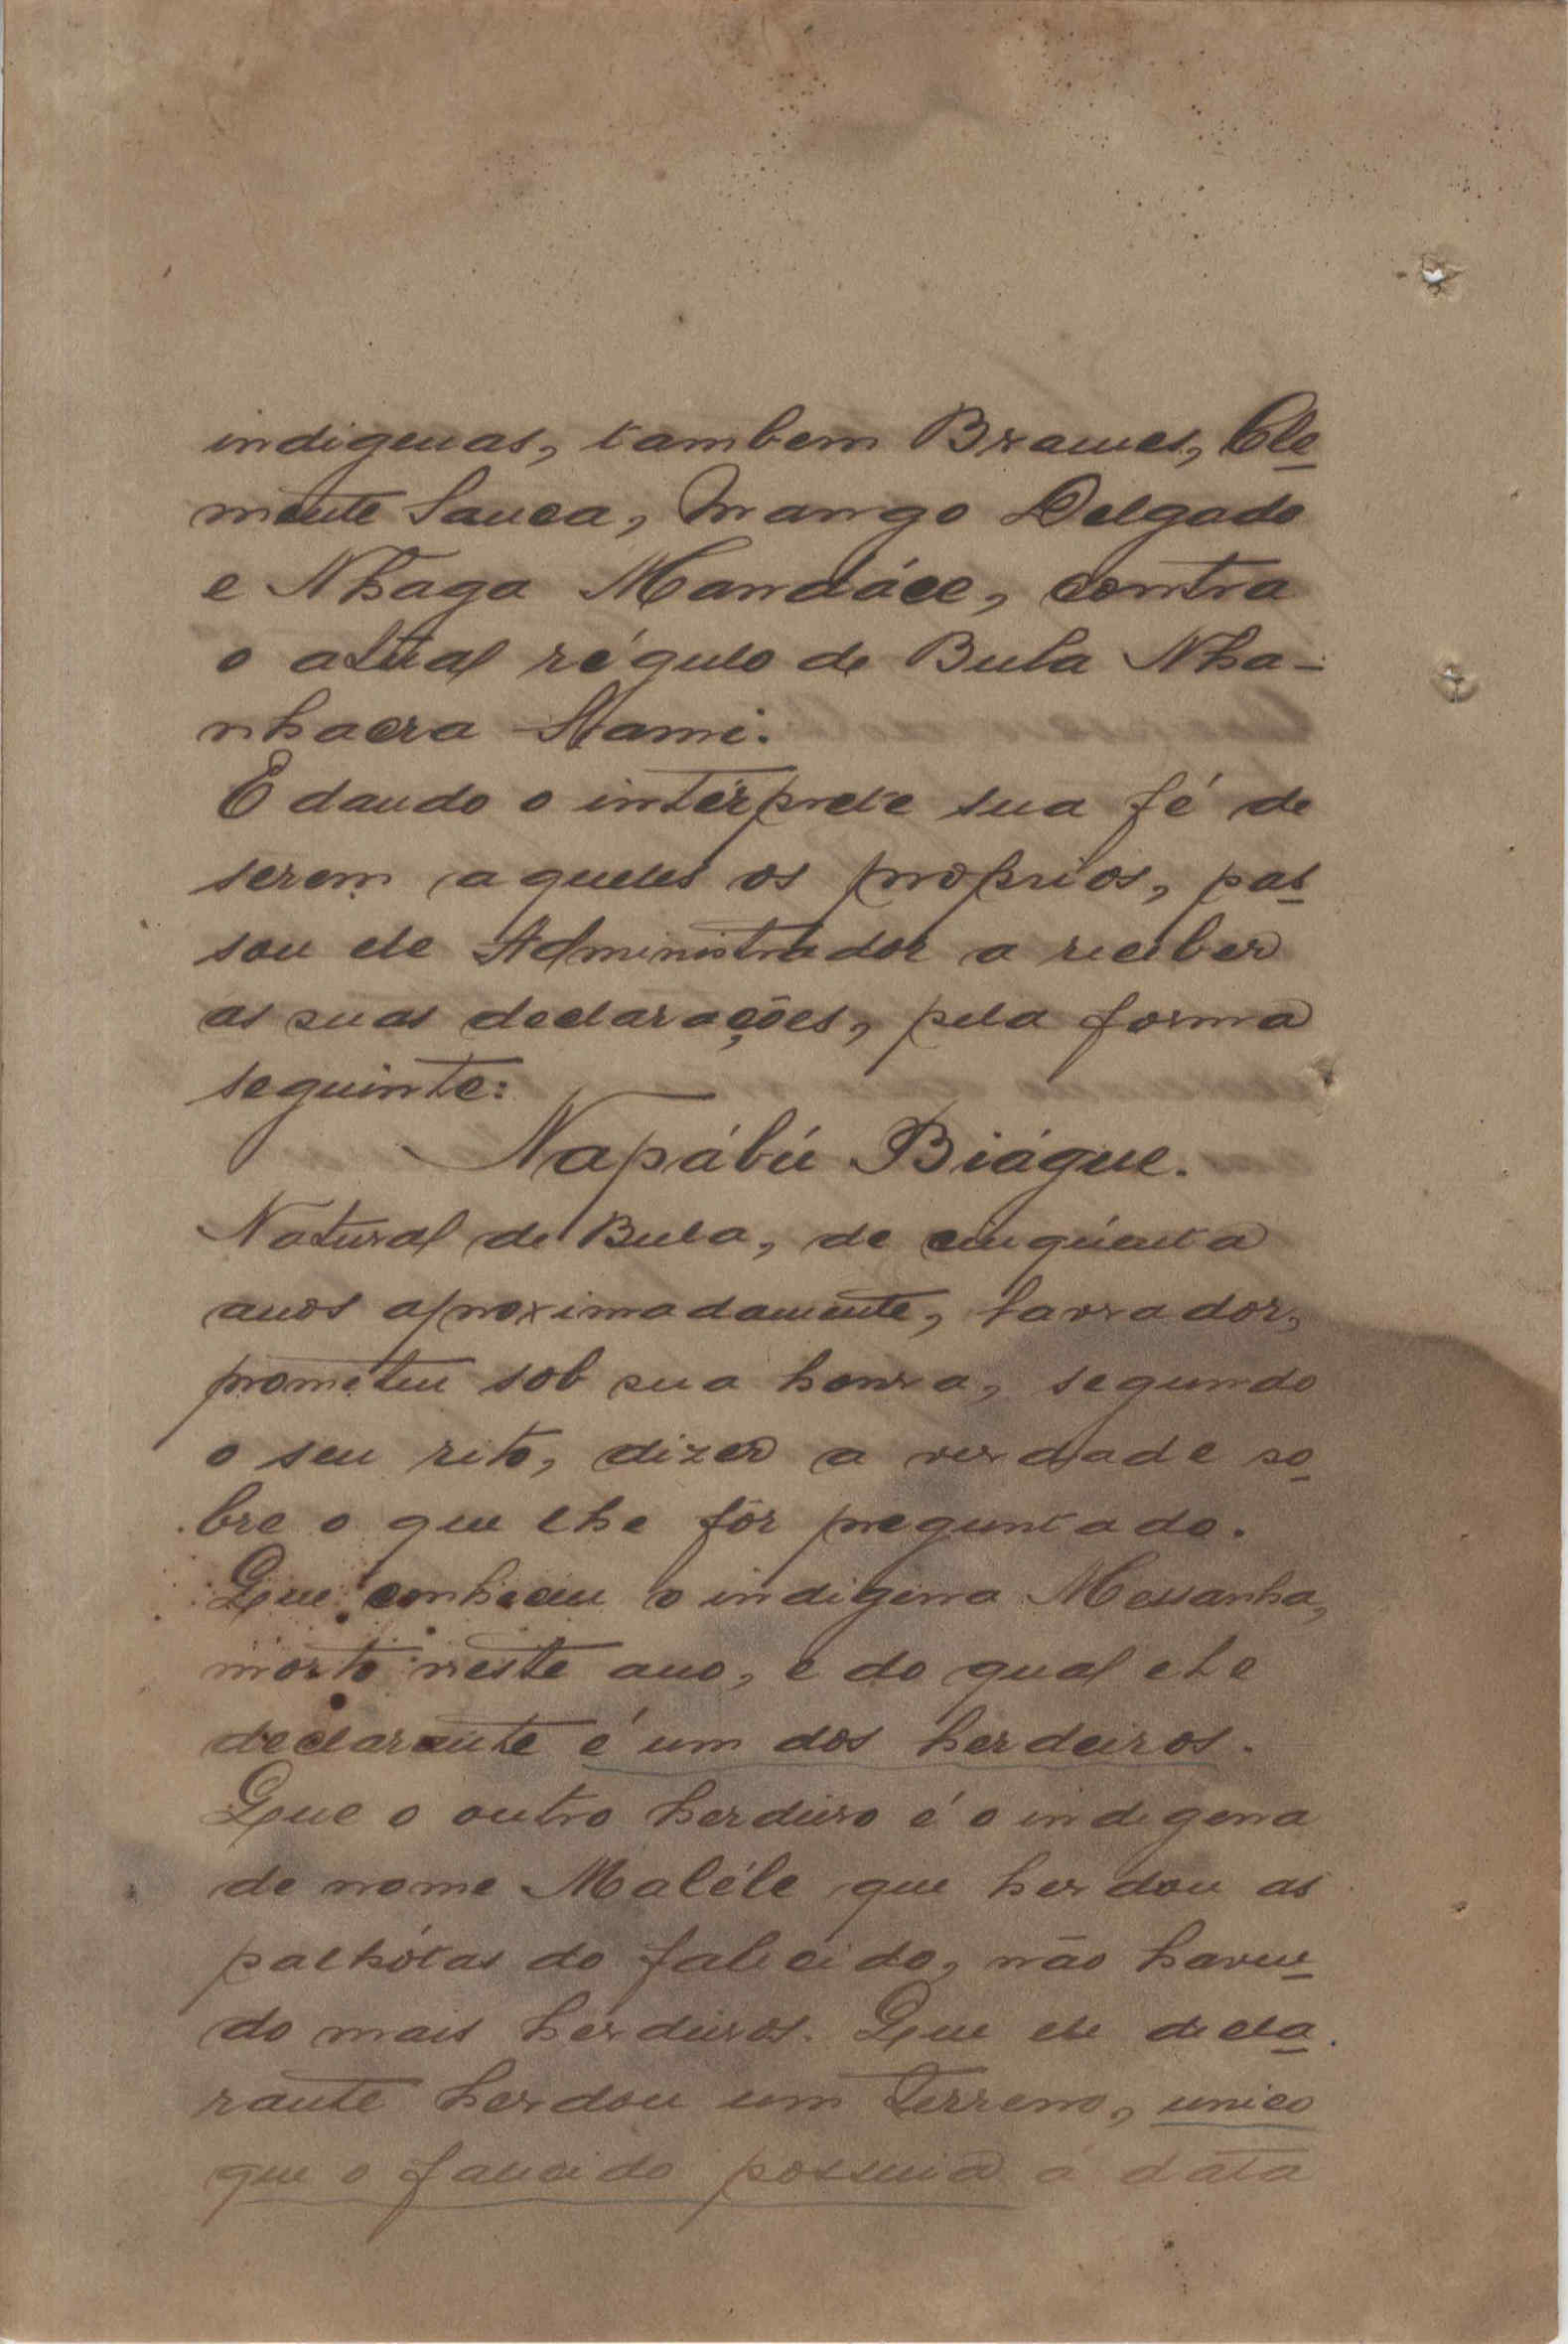 indigenas, tambem Brames, Cle-
mente Sanca, Mango Delgado
e Nhaga Mandáce, contra
o atual régulo de Bula Nha-
nhacra Nami.
E dando o intérprete sua fé de
serem aqueles os proprios, pas-
sou ele Administrador a receber
as suas declarações, pela forma
seguinte:
Napábú Biágue.
Natural de Bula, de cinqúenta
anos aproximadamente, lavrador,
prometeu sob sua honra, segundo
o seu rito, dizer a verdade so-
bre o que lhe fôr preguntado.
Que conheceu o indigena Messanha,
morto neste ano, e do qual ele
declarante é um dos herdeiros.
Que o outro herdeiro é o indigena
de nome Maléle que herdou as
palhótas do falecido, não haven-
do mais herdeiros. Que ele decla-
rante herdou um terreno, unico
que o falecido possuia á data